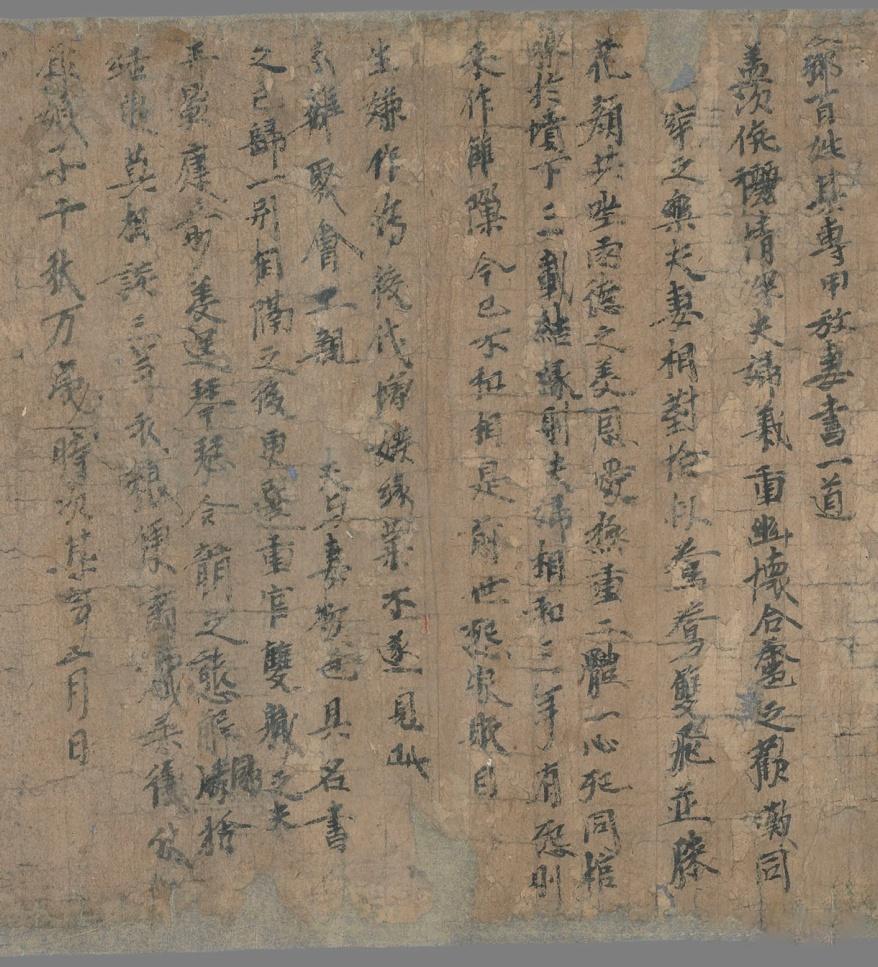 鄉百姓某專甲放妻書一道
蓋次伉儷情深夫婦義重幽懷合巹之歡歎同
牢之樂夫妻相對恰似鴛鴦雙飛並膝
花顏共坐兩德之美恩愛極重二體一心死同棺
槨於墳下三載結緣則夫婦相和三年有怨則
來作讎隟今已不和相是前世怨家販目
生嫌作為後代增嫉緣業不遂見此
分離聚會二親夫与妻物色具名書
之已歸一別相隔之後更選重官雙職之夫
美逞琴瑟合韻之態解捨
結更莫相談三年衣粮
娘子千秋万歲時次某年月日